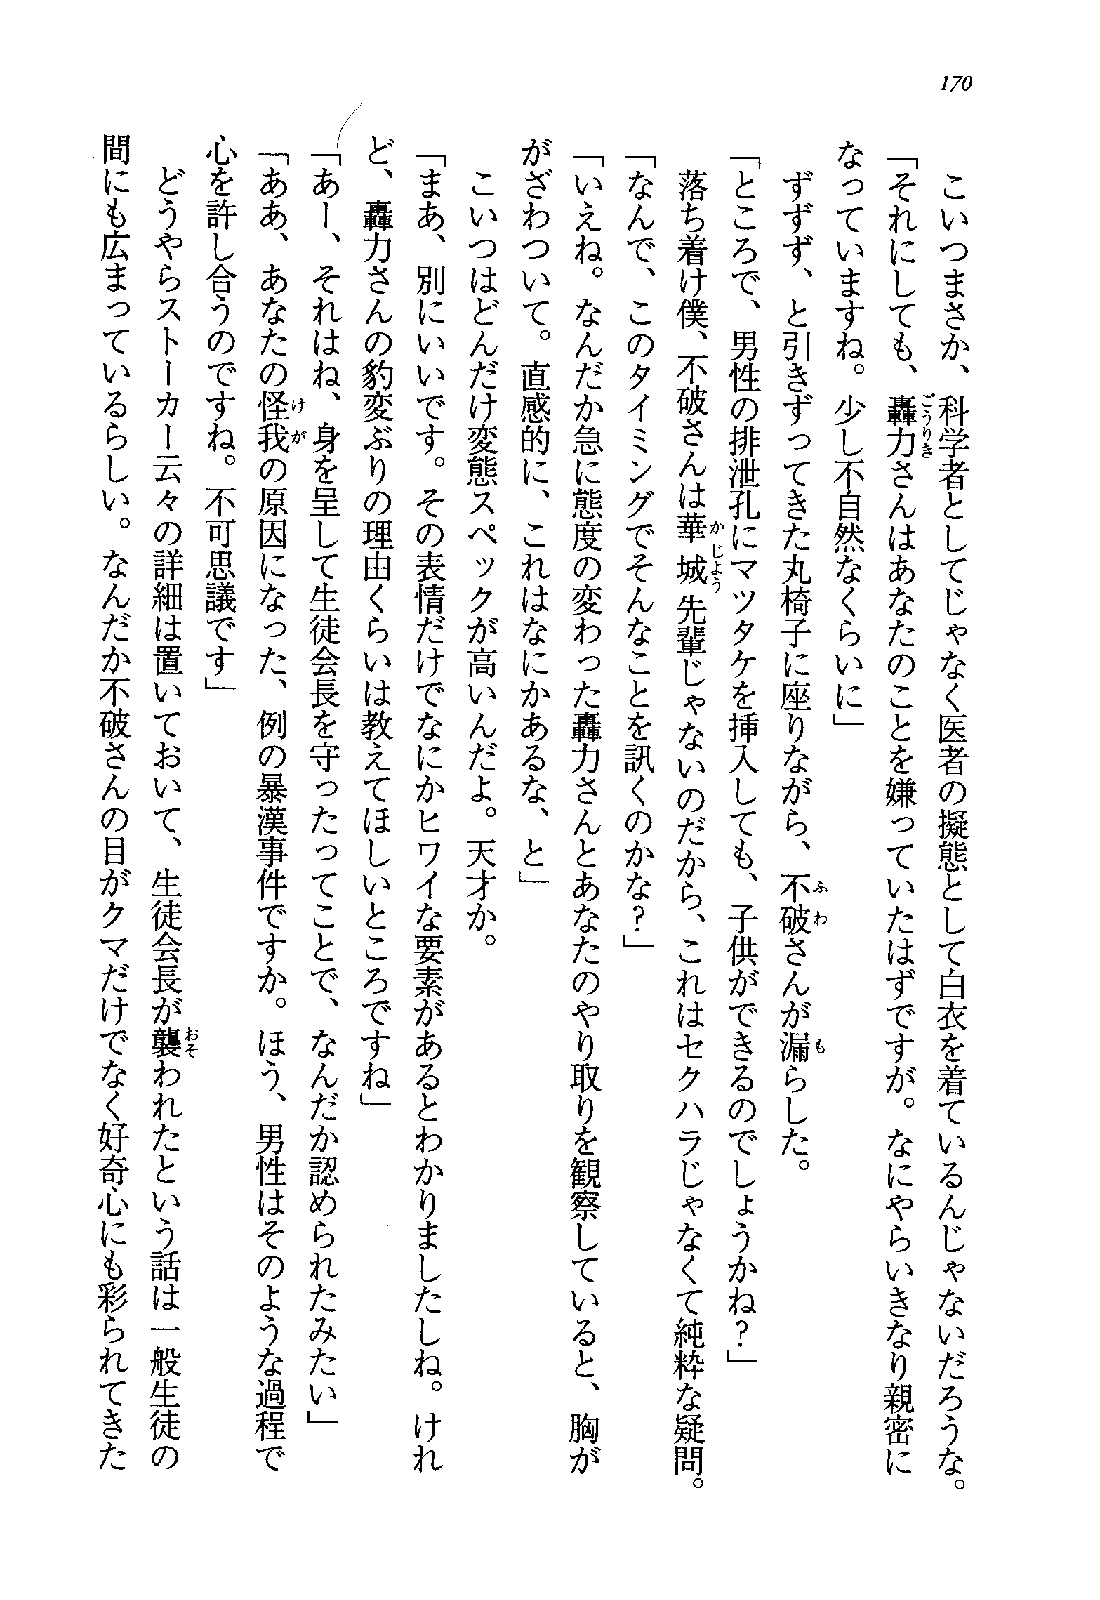 170
　こいつまさか、科学者としてじゃなく医者の擬態として白衣を着ているんじゃないだろうな。
「それにしても、轟力さんはあなたのことを嫌っていたはずですが。なにやらいきなり親密に
なっていますね。少し不自然なくらいに」
　ずずず、と引きずってきた丸椅子に座りながら、不破さんが漏らした。
「ところで、男性の排泄孔にマツタケを挿入しても、子供ができるのでしょうかね？」
　落ち着け僕、不破さんは華城先輩じゃないのだから、これはセクハラじゃなくて純粋な疑問。
「なんで、このタイミングでそんなことを訊くのかな？」
「いえね。なんだか急に態度の変わった轟力さんとあなたのやり取りを観察していると、胸が
がざわついて。直感的に、これはなにかあるな、と」
　こいつはどんだけ変態スペックが高いんだよ。天才か。
「まあ、別にいいです。その表情だけでなにかヒワイな要素があるとわかりましたしね。けれ
ど、轟力さんの豹変ぶりの理由くらいは教えてほしいところですね」
「あー、それはね、身を呈して生徒会長を守ったってことで、なんだか認められたみたい」
「ああ、あなたの怪我の原因になった、例の暴漢事件ですか。ほう、男性はそのような過程で
心を許し合うのですね。不可思議です」
　どうやらストーカー云々の詳細は置いておいて、生徒会長が襲われたという話は一般生徒の
間にも広まっているらしい。なんだか不破さんの目がクマだけでなく好奇心にも彩られてきた